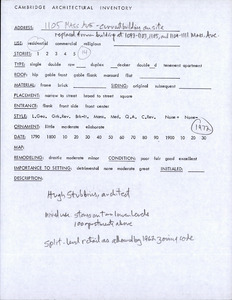 CAMBRIDGE ARCHITECTURAL INVENTORY
ADDRESS: 1105 Mass Ave - current building on site
replaced former building at 1093-1107, 1105, and 1109-1111 Mass. Ave.
USE: residential commercial religious
STORIES: 1 2 3 4 5
TYPE: single double row duplex decker double d tenement apartment
ROOF: hip gable front gable flank mansard flat
MATERIAL: frame brick SIDING: original subsequent
PLACEMENT: narrow to street broad to street square
ENTRANCE: flank front side front center
STYLE: L.Geo. Grk.Rev. Brk-It. Mans. Med. Q.A. C.Rev. None
ORNAMENT: little moderate elaborate
1790 1800 10 20 30 40 50 60 70 80 90 1900 10 20 30
1972
MAP:
REMODELING: drastic moderate minor CONDITION: poor fair good excellent
IMPORTANCE TO SETTING: detrimental none moderate great INITIALED:
DESCRIPTION:
Hugh Stubbins architect
mixed use stores on lower levels
100 apartments above
Split-level retail as allowed by 1962 zoning code